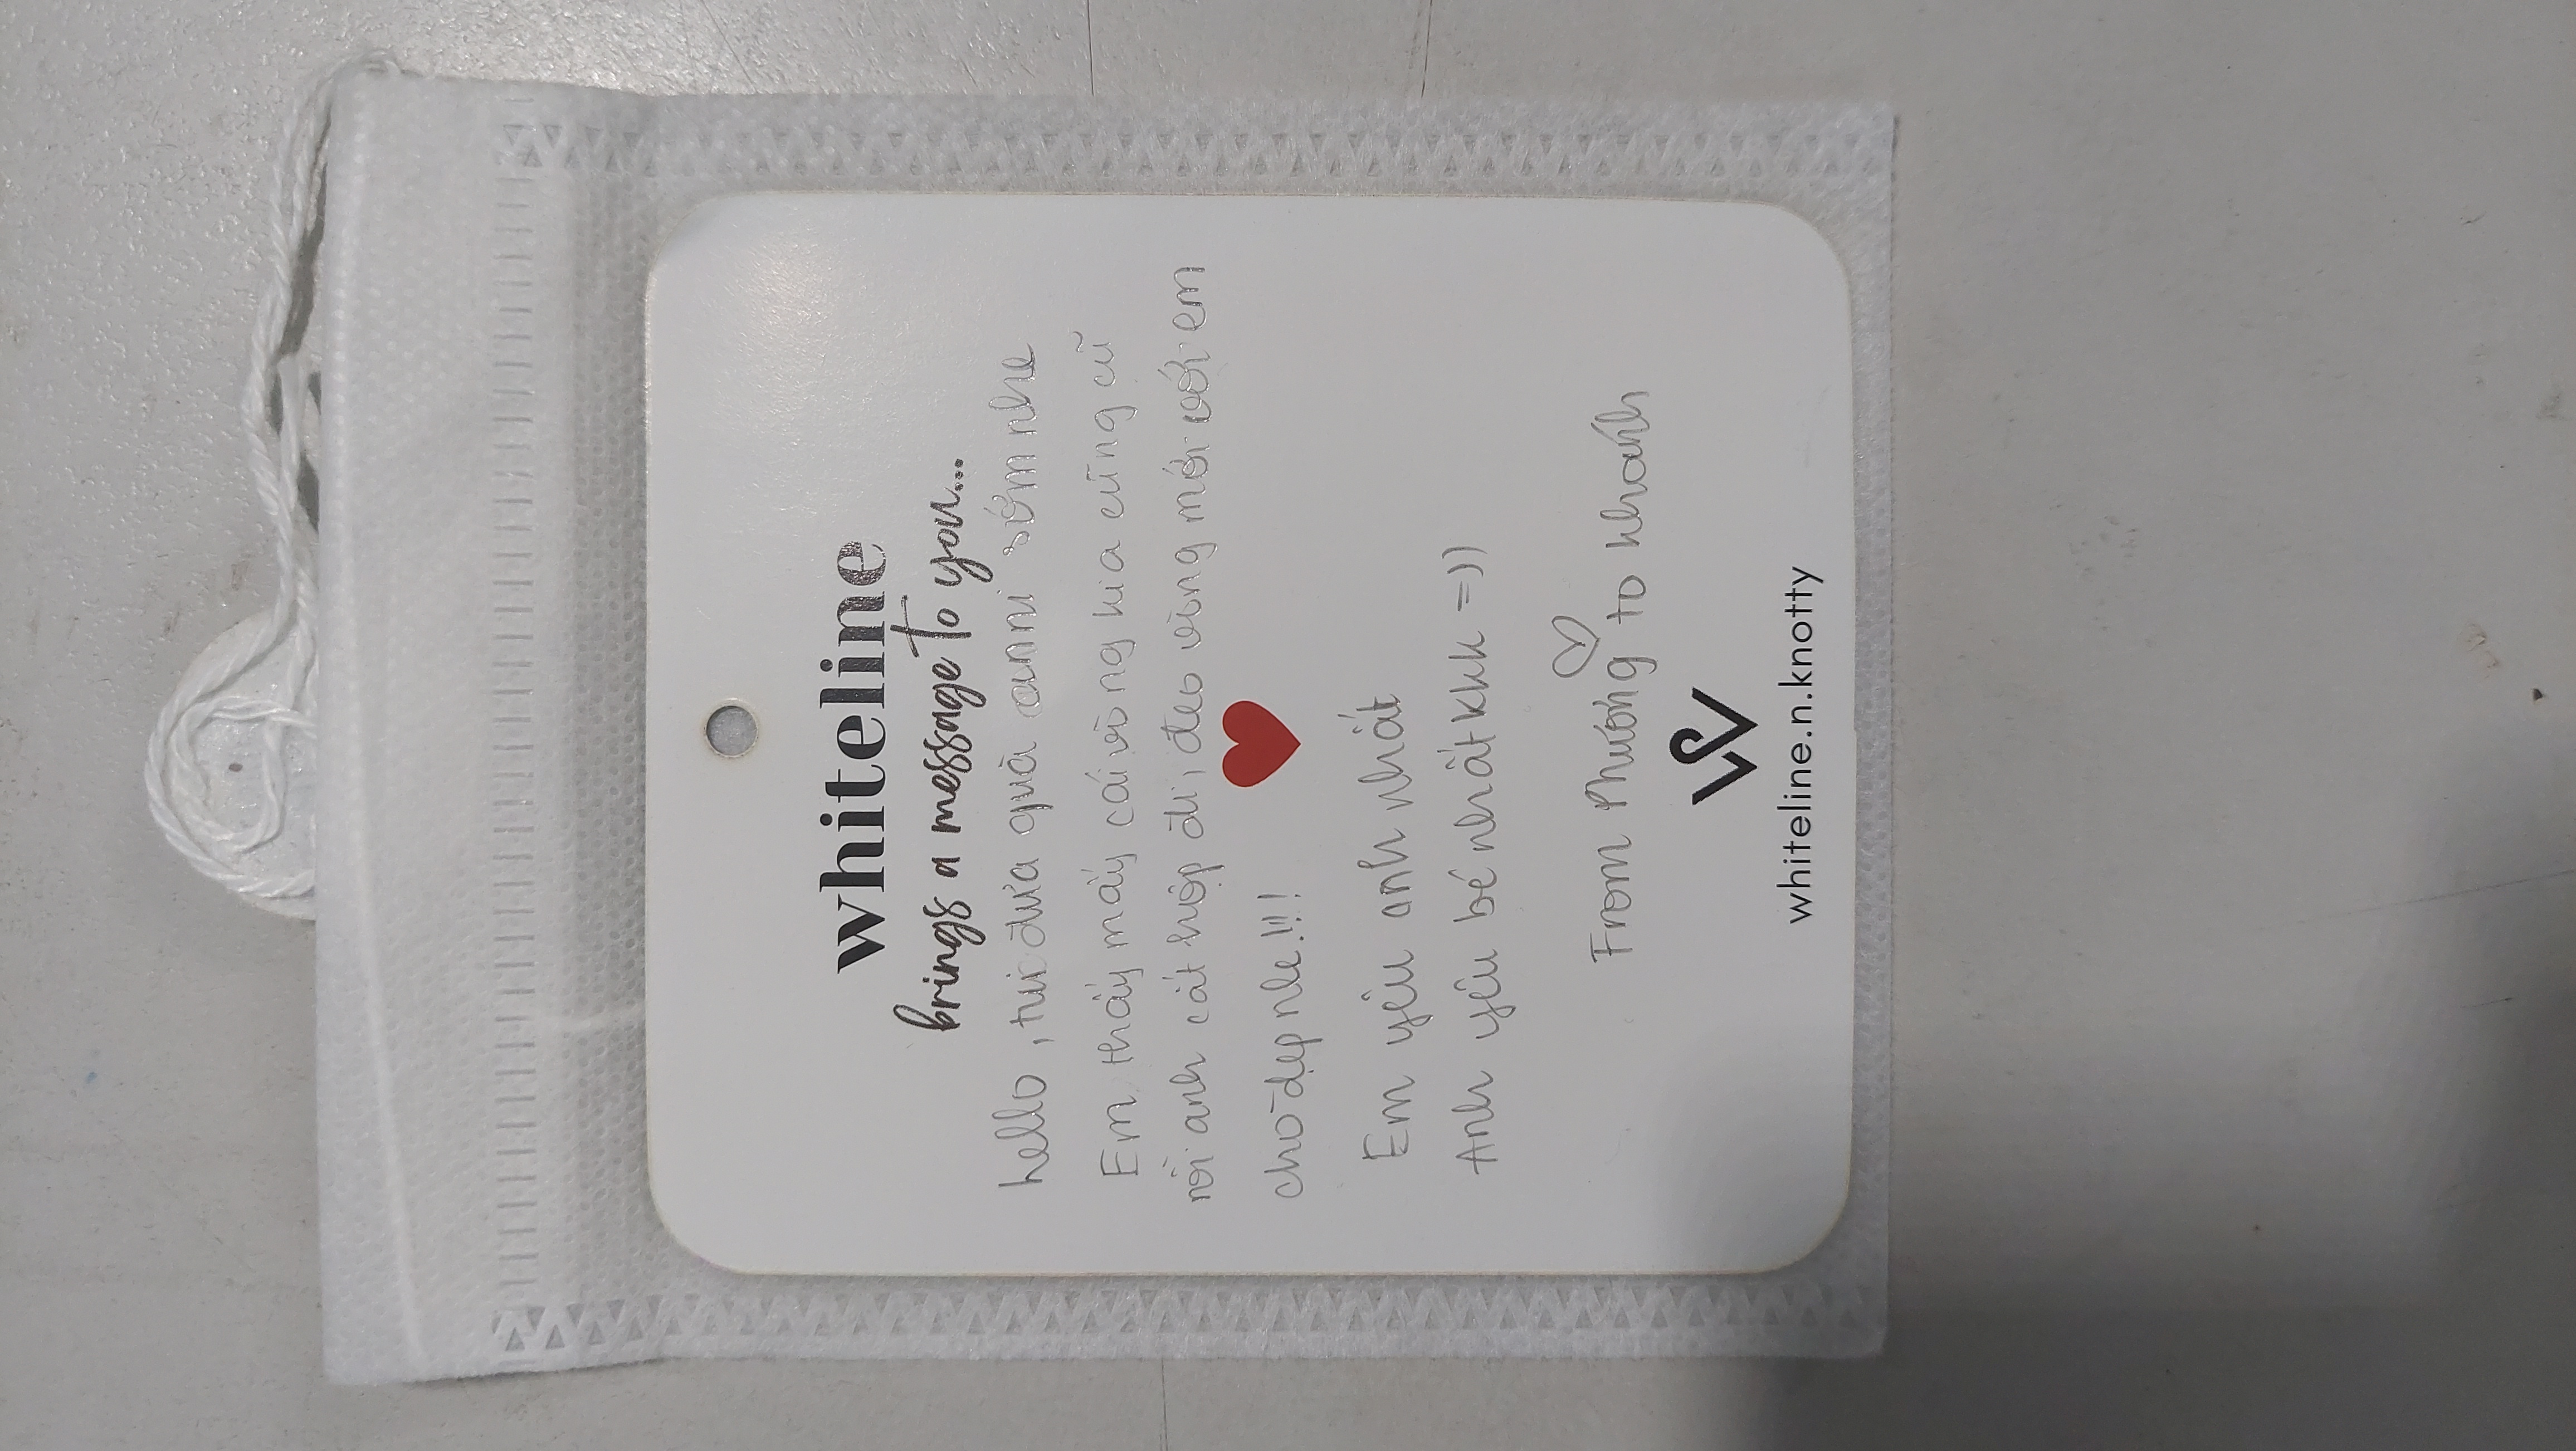 whiteline
brings a message to you...
hello, tui đưa quà anni sớm nhe
Em thấy mấy cái vòng kia cũng cũ
rồi anh cất hộp đi, đeo vòng mới với em
cho đẹp nhe!!!
Em yêu anh nhất
Anh yêu bé nhất kkk =))
From Phương to Khánh
whiteline.n.knotty